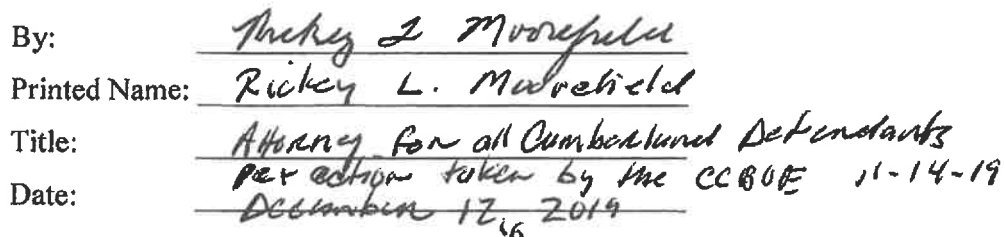 By: Rickey L Moorefield
Printed Name: Rickey L. Moorefield
Title: Attorney for all Cumberland Defendants
per action taken by the CCBOE 11-14-19
Date: December 12, 2019
16